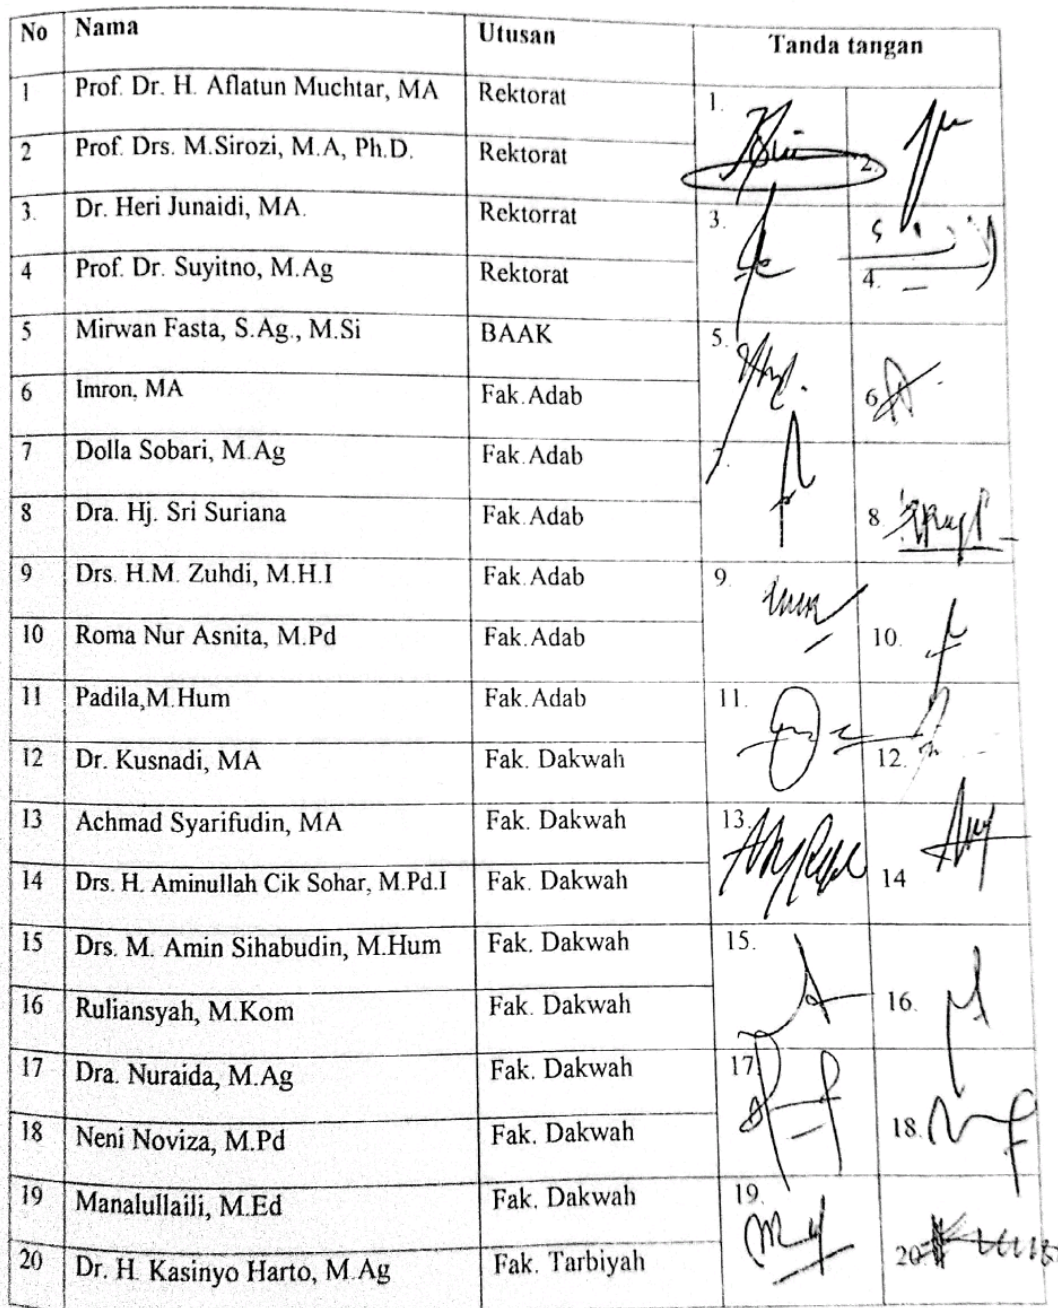 No Nama Utusan Tanda tangan
1 Prof. Dr. H. Aflatun Muchtar, MA Rektorat 1.
2 Prof. Drs. M.Sirozi, M.A, Ph.D. Rektorat 2.
3. Dr. Heri Junaidi, MA. Rektorrat 3.
4 Prof. Dr. Suyitno, M.Ag Rektorat 4.
5 Mirwan Fasta, S.Ag., M.Si BAAK 5.
6 Imron, MA Fak.Adab 6
7 Dolla Sobari, M.Ag Fak.Adab
8 Dra. Hj. Sri Suriana Fak.Adab 8.
9 Drs. H.M. Zuhdi, M.H.I Fak.Adab 9.
10 Roma Nur Asnita, M.Pd Fak.Adab 10.
11 Padila,M.Hum Fak.Adab 11.
12 Dr. Kusnadi, MA Fak. Dakwah 12.
13 Achmad Syarifudin, MA Fak. Dakwah 13.
14 Drs. H. Aminullah Cik Sohar, M.Pd.I Fak. Dakwah 14
15 Drs. M. Amin Sihabudin, M.Hum Fak. Dakwah 15.
16 Ruliansyah, M.Kom Fak. Dakwah 16.
17 Dra. Nuraida, M.Ag Fak. Dakwah 17.
18 Neni Noviza, M.Pd Fak. Dakwah 18.
19 Manalullaili, M.Ed Fak. Dakwah 19.
20 Dr. H. Kasinyo Harto, M.Ag Fak. Tarbiyah 20